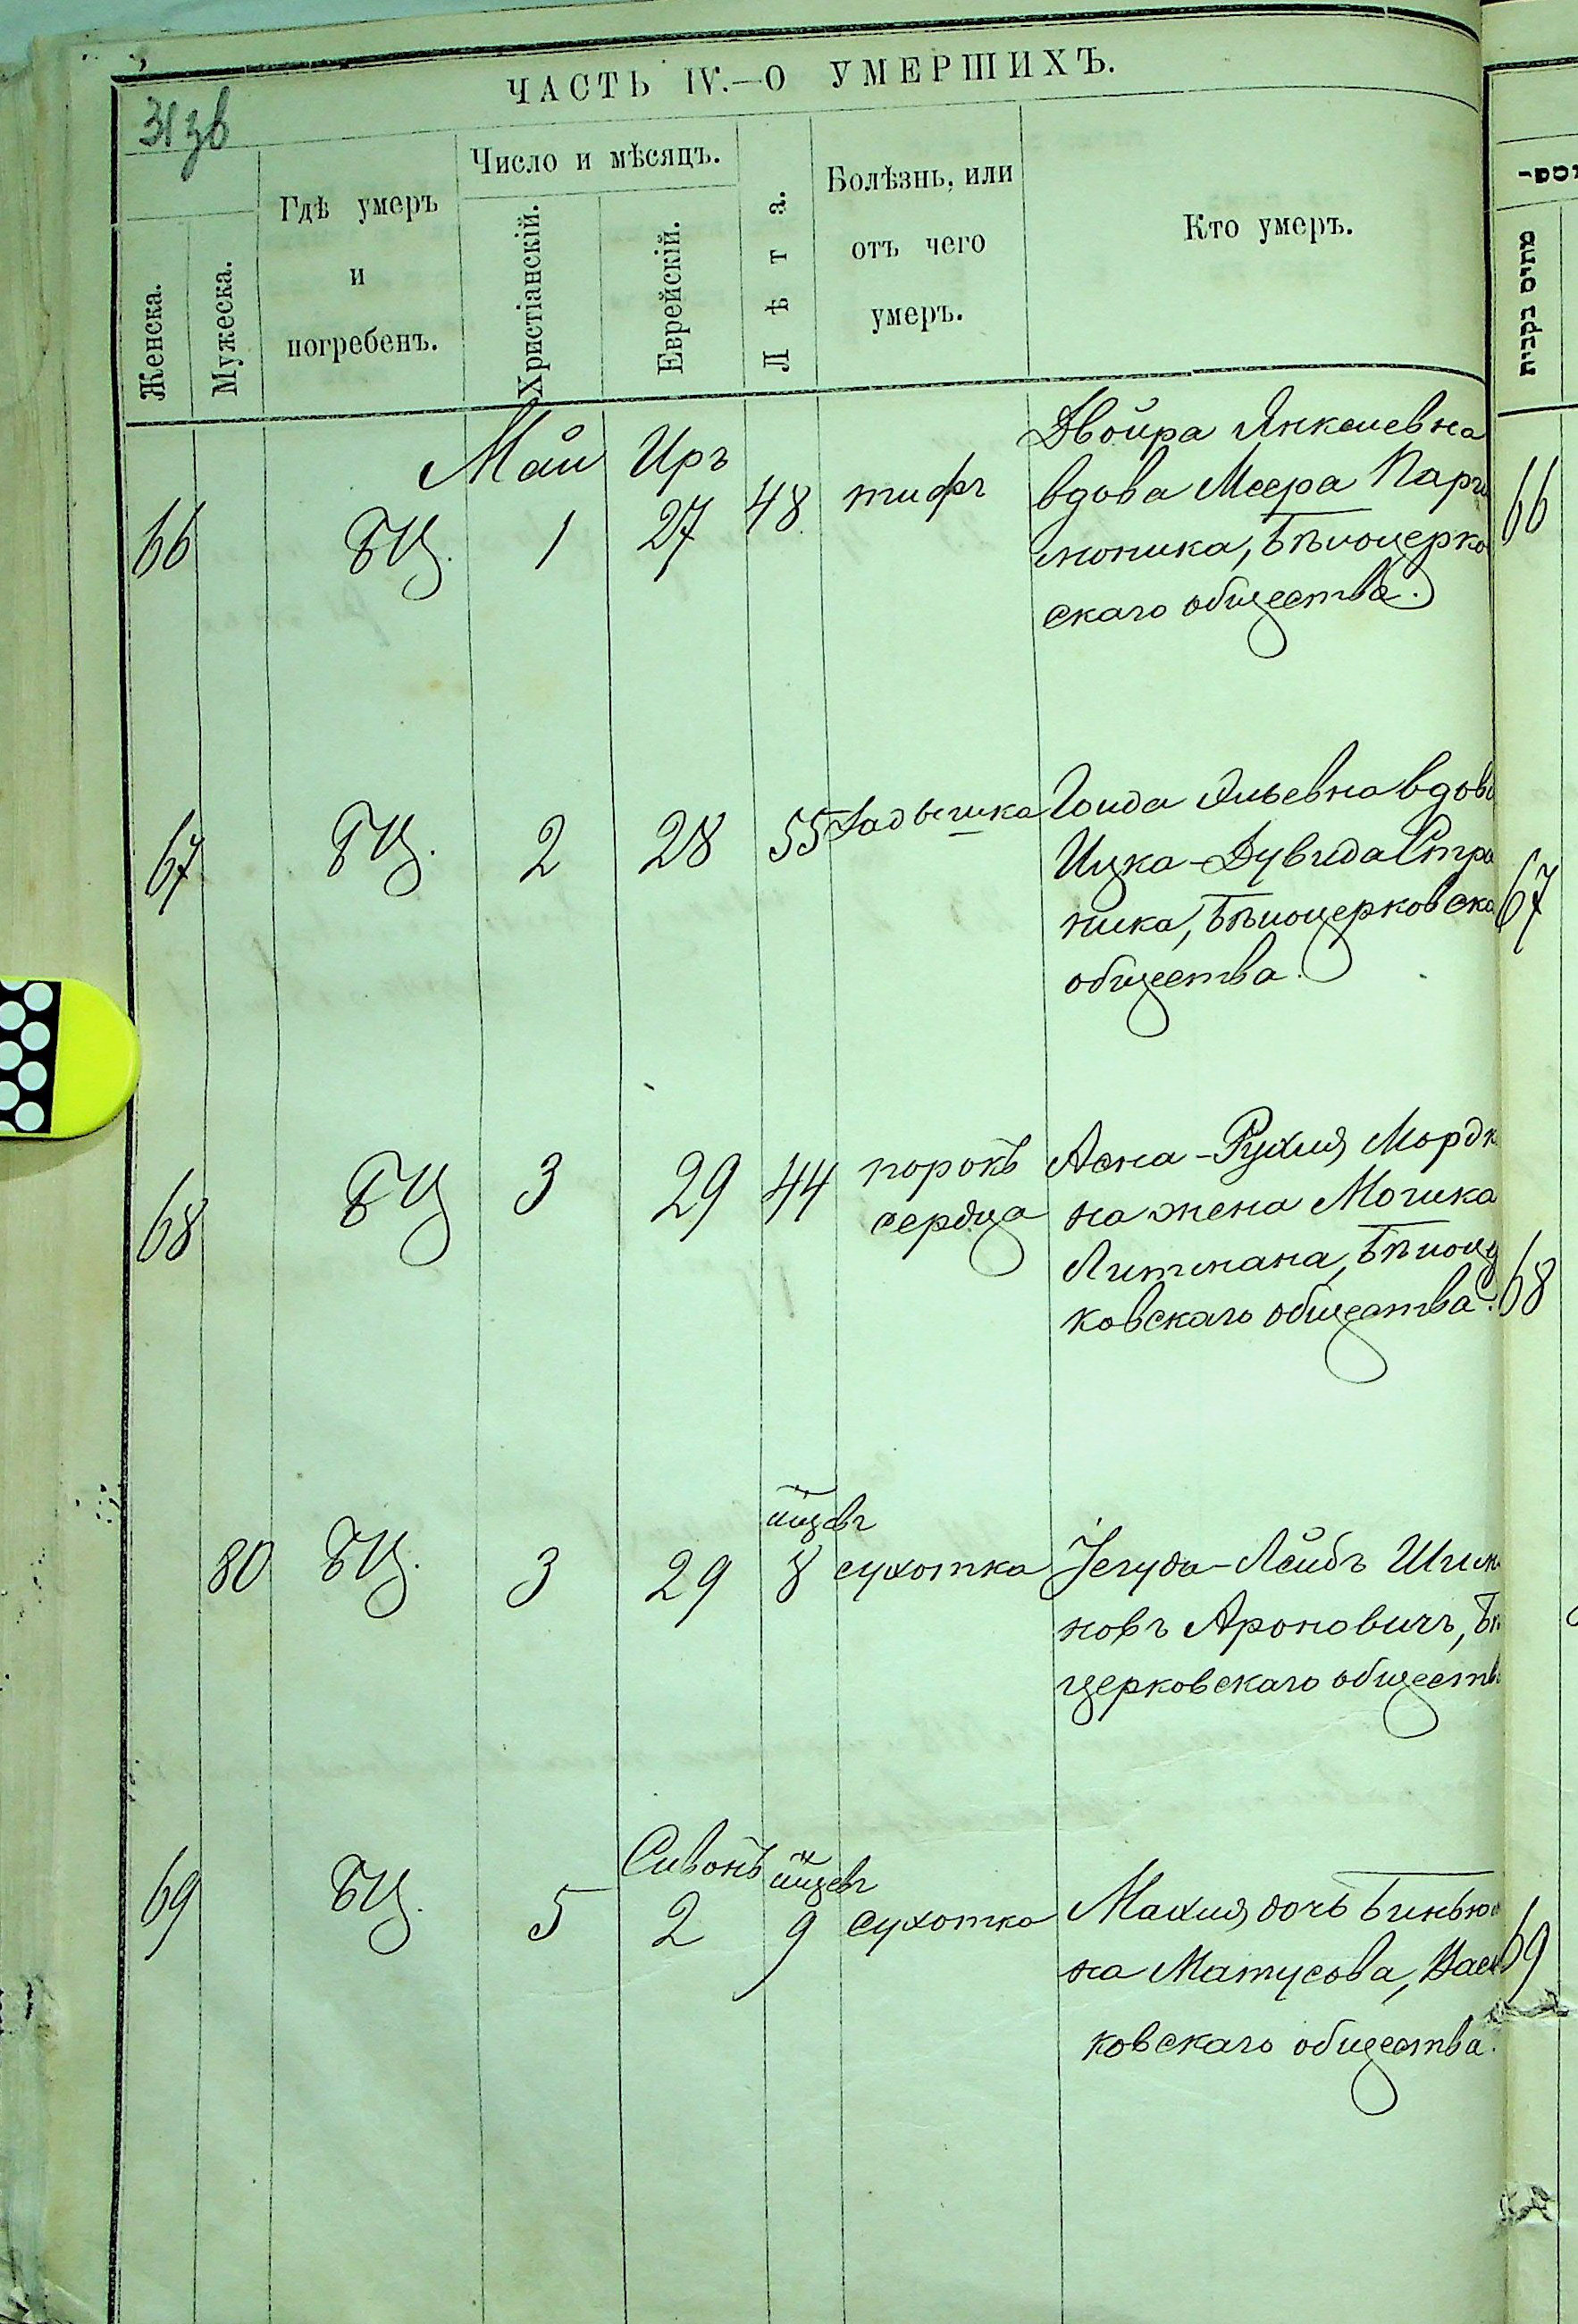 31зв
ЧАСТЬ IV.—О УМЕРШИХЪ.
Женска.
Мужеска.
Гдѣ умеръ
и
погребенъ.
Число и мѣсяцъ.
Христіанскій.
Еврейскій.
Лѣта.
Болѣзнь, или
отъ чего
умеръ.
Кто умеръ.
מתים נקבית
Май Иръ
66 БЦ. 1 27 48 тифъ
Двойра Янкелевна
вдова Меера Парга
моника, Бѣлоцерко
скаго общества.
66
67 БЦ. 2 28 55 Задышка
Гольда Эльевна вдова
Ицка-Дувида Стра
ника, Бѣлоцерковска
общества.
67
68 БЦ 3 29 44 порокъ
сердца
Асна-Рухля Мордк
на жена Мошка
Литмана, Бѣлоц
ковскаго общества.
68
мѣсцевъ
80 БЦ. 3 29 8 сухотка
Іегуда-Лейбъ Шли
новъ Ароновичъ, Бѣ
церковскаго обществ
Сивонъ мѣсцевъ
69 БЦ. 5 2 9 сухотка
Махля дочь Биньюм
на Матусова, Васи
ковскаго общества.
69